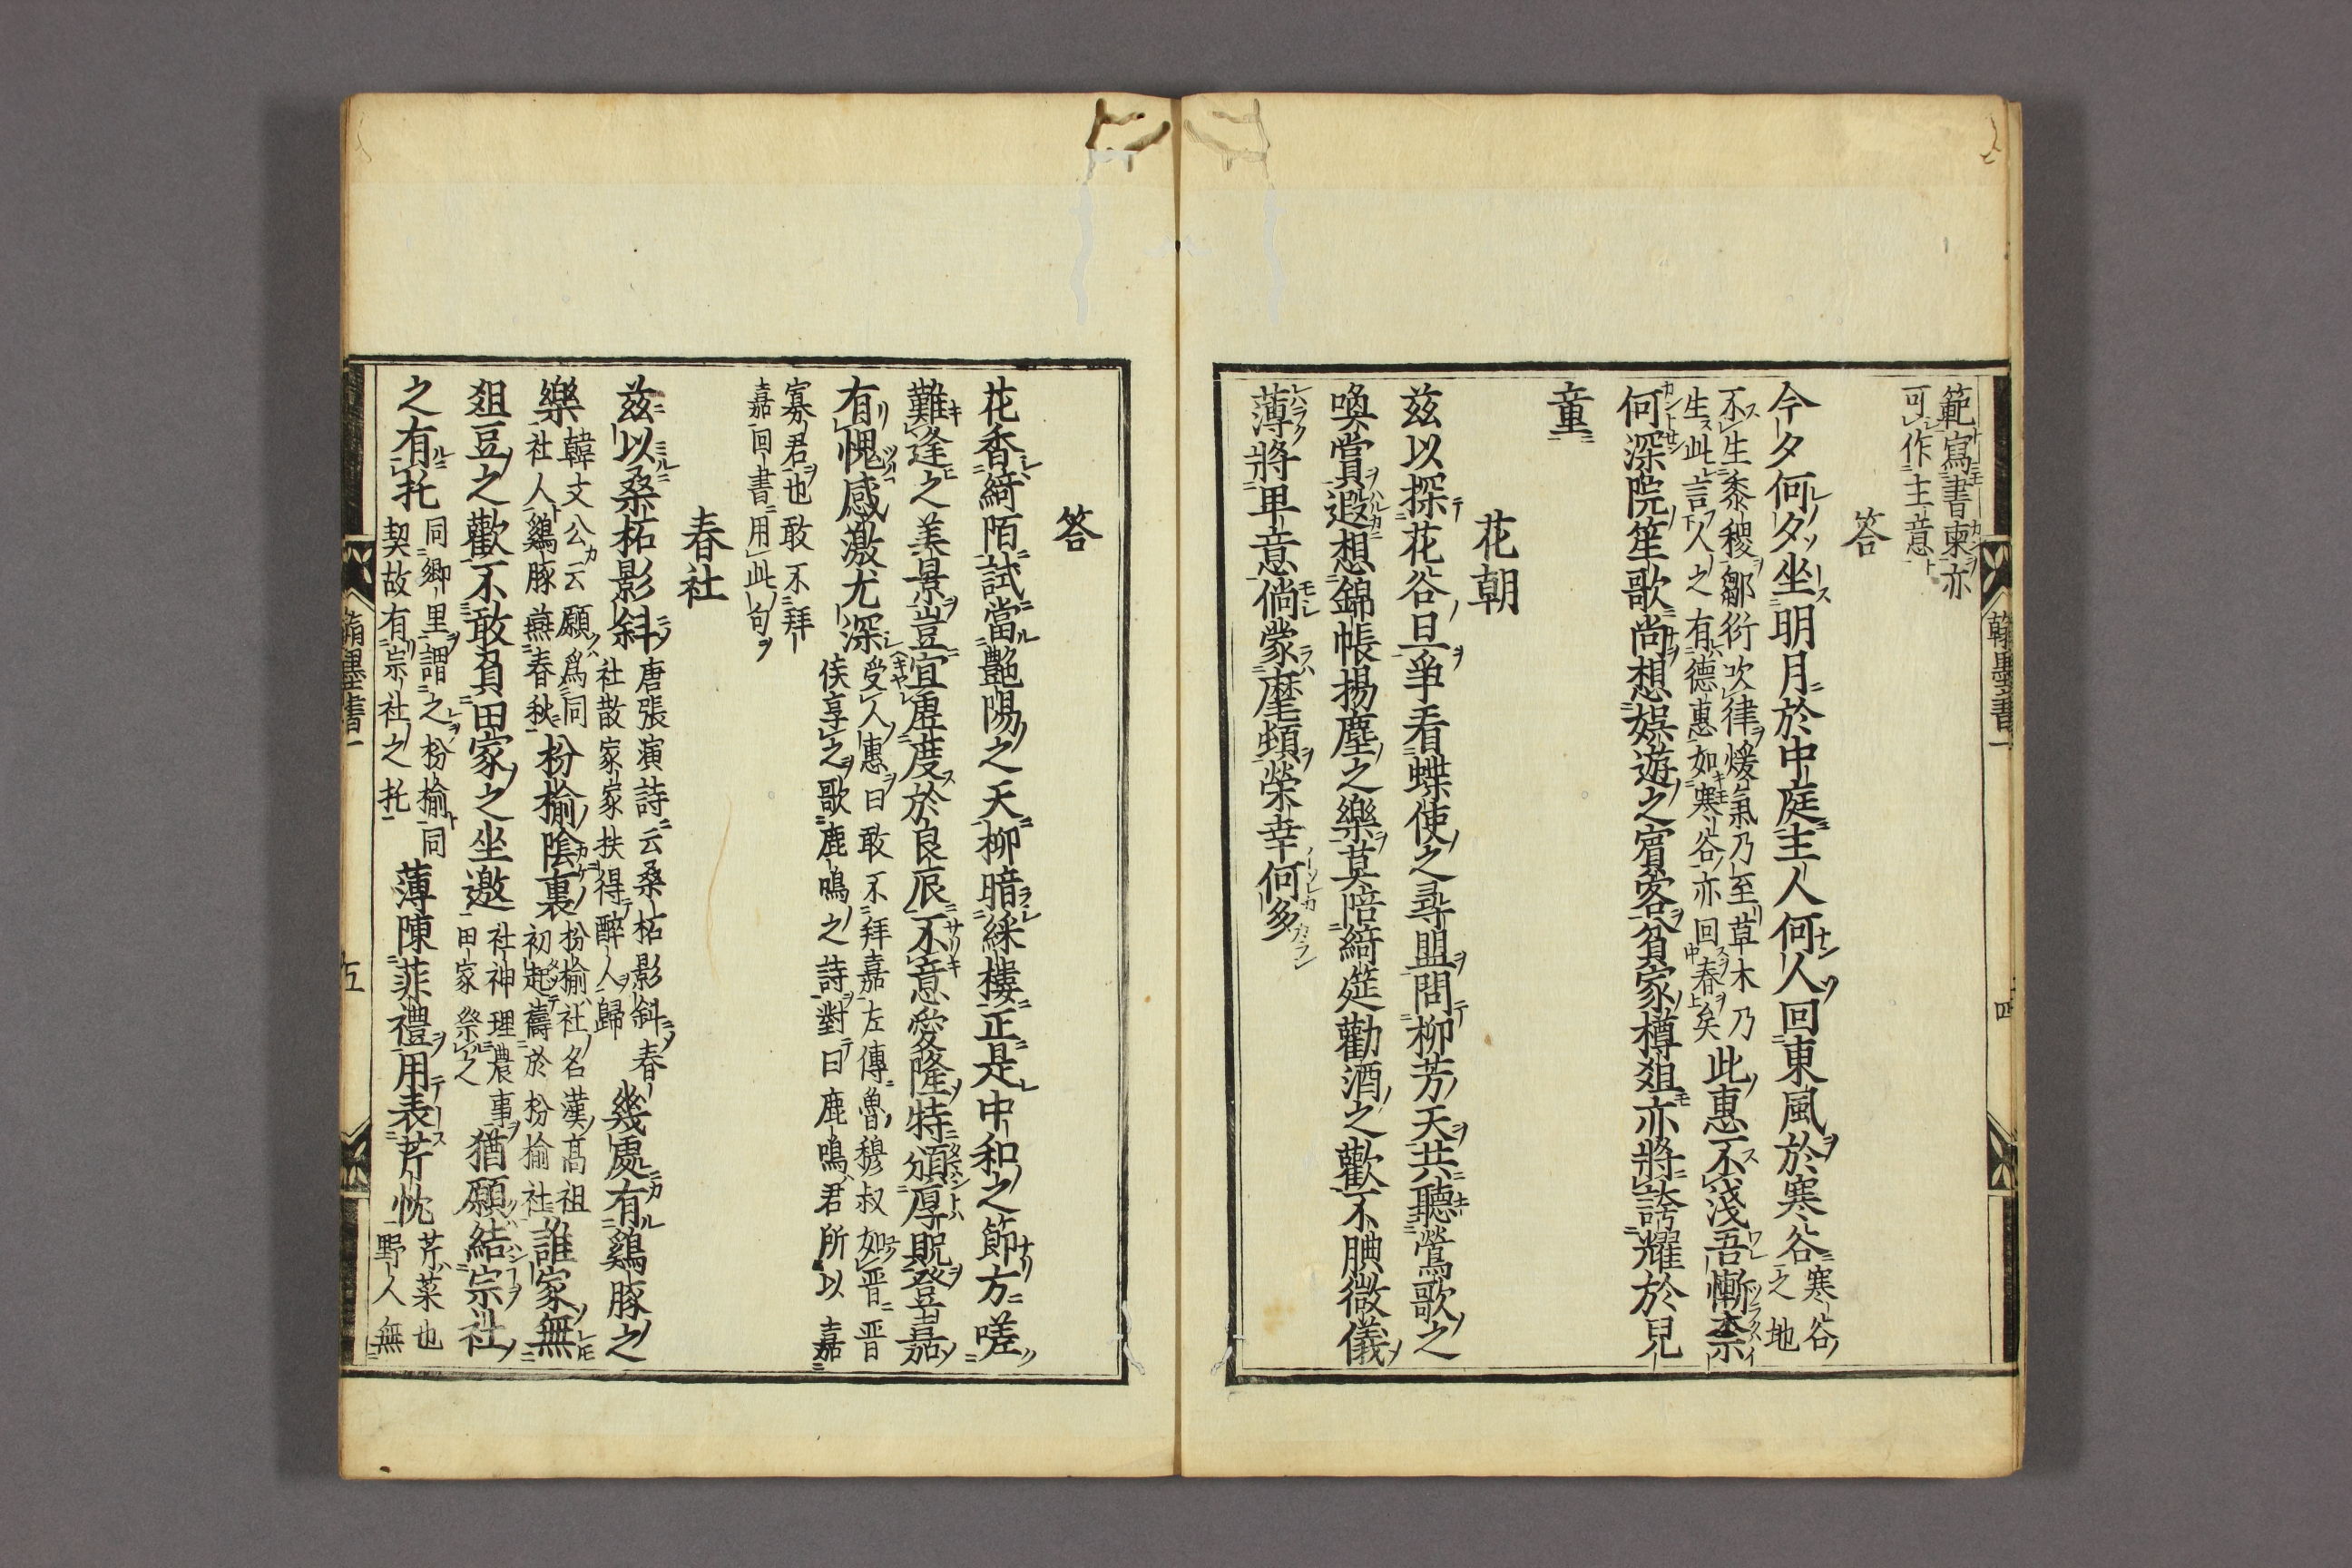 範寫書柬亦
可作主意
答
今夕何夕坐明月於中庭主人何人回東風於寒谷寒谷
之地
不生黍稷鄒衍吹律煖氣乃至草木乃
生此言人之有德惠如寒谷亦回春矣此惠不淺吾慚柰
何深院笙歌尚想娯遊之賓客貧家樽俎亦將誇耀於兒
童
花朝
茲以探花谷旦爭看蝶使之尋盟問柳芳天共聽鶯歌之
喚賞遐想錦帳揚塵之樂莫陪綺筵勸酒之歡不腆微儀
薄將卑意倘蒙麾頓榮幸何多
翰墨書一
四
答
花香綺陌試當艷陽之天柳暗綵樓正是中和之節方嗟
難逢之美景豈宜虛度於良辰不意愛隆特頒厚貺登嘉
有愧感激尤深受人惠曰敢不拜嘉左傳魯穆叔如晋晋
侯享之歌鹿鳴之詩對曰鹿鳴君所以嘉
寡君也敢不拜
嘉回書用此句
春社
茲以桑柘影斜唐張演詩云桑柘影斜春
社散家家扶得醉人歸幾處有鷄豚之
樂韓文公云願爲同
社人鷄豚燕春秋枌榆陰裏枌榆社名漢高祖
初起禱於枌榆社誰家無
俎豆之歡不敢負田家之坐邀社神理農事
田家祭之猶願結宗社
之有托同鄉里謂之枌榆同
契故有宗社之托薄陳菲禮用表芹忱芹菜也
野人無
翰墨書一
五